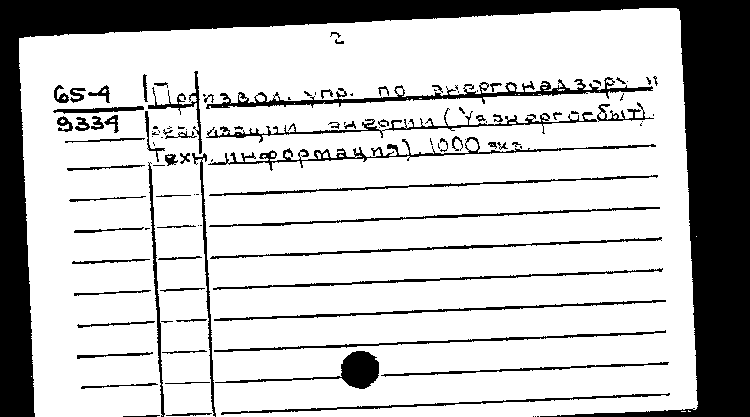 2
65-4 Производ. упр. по энергонадзору и
9334 реализации энергии (Узэнергосбыт).
Техн. информация) 1000 экз.